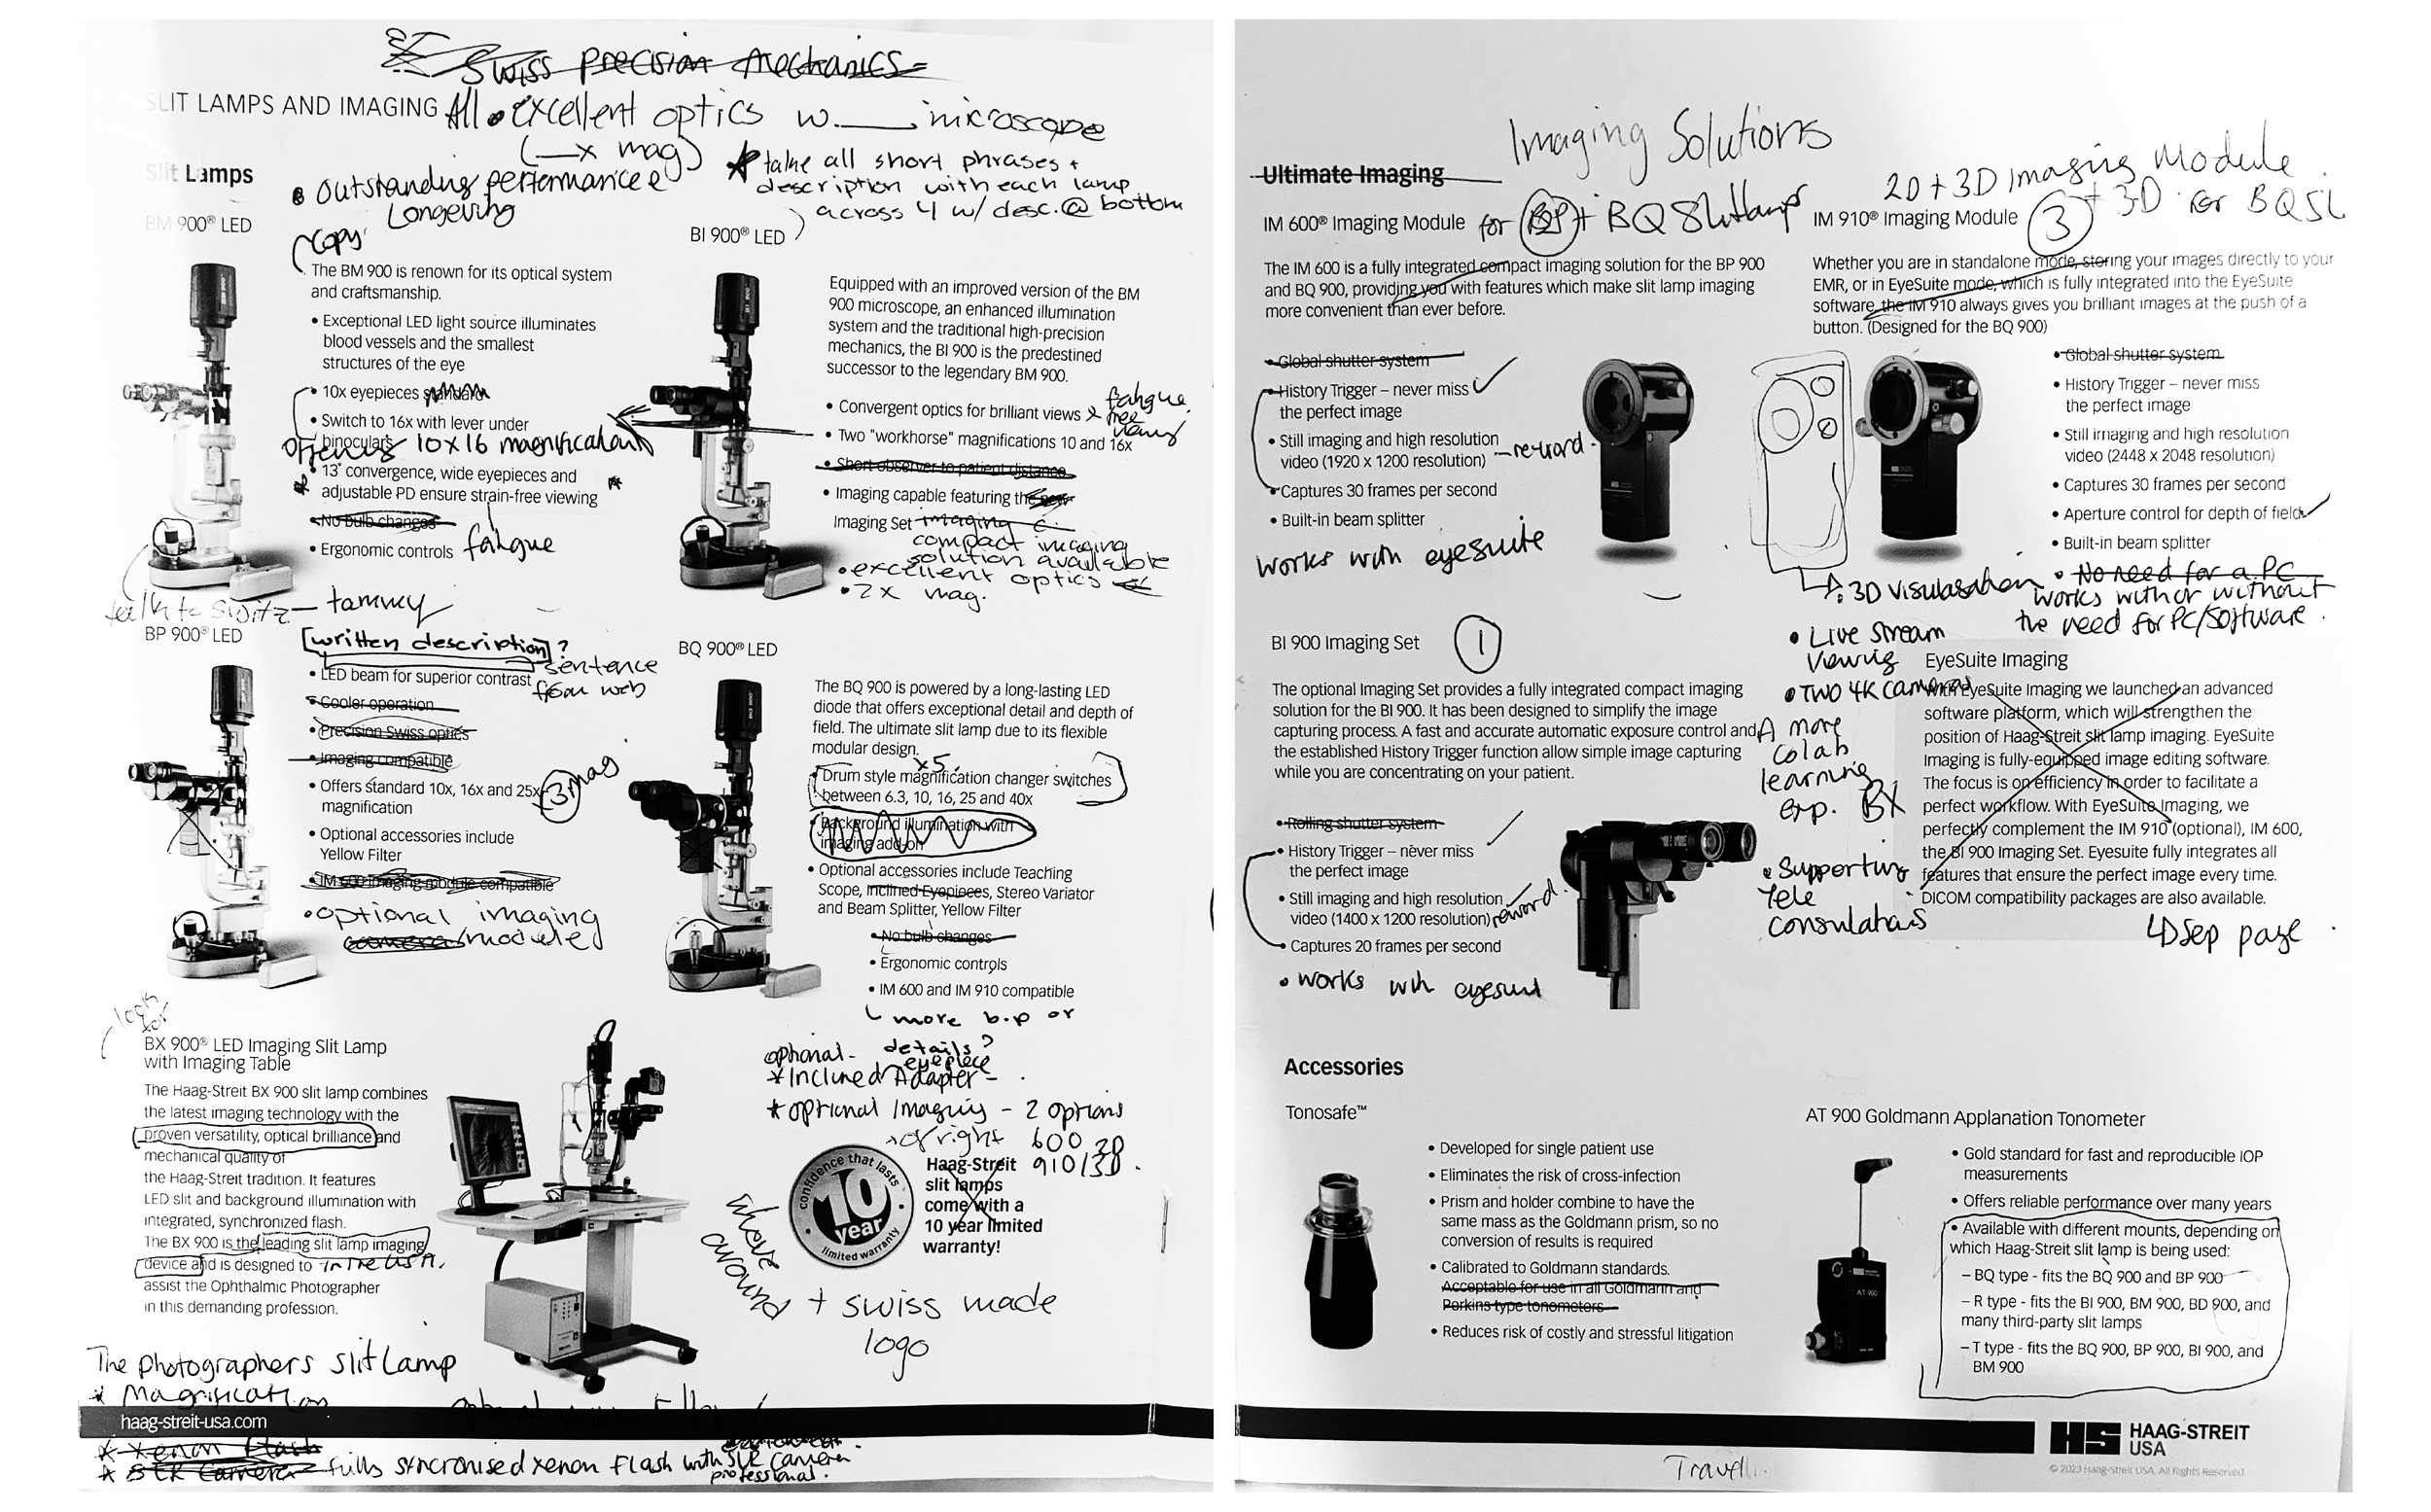 Swiss precision mechanics
SLIT LAMPS AND IMAGING All • excellent optics w. ___ microscope
(__x mag)
Slit Lamps
• Outstanding performance e
Longevity
* take all short phrases +
description with each lamp
across 4 w/ desc. @ bottom
BM 900® LED
Copy
The BM 900 is renown for its optical system
and craftsmanship.
• Exceptional LED light source illuminates
blood vessels and the smallest
structures of the eye
• 10x eyepieces standard
• Switch to 16x with lever under
binoculars
Offering 10x16 magnification
• 13° convergence, wide eyepieces and
adjustable PD ensure strain-free viewing
• No bulb changes
• Ergonomic controls
fatigue
talk to Switz - tammy
BI 900® LED
Equipped with an improved version of the BM
900 microscope, an enhanced illumination
system and the traditional high-precision
mechanics, the BI 900 is the predestined
successor to the legendary BM 900.
• Convergent optics for brilliant views & fatigue
free
views
• Two "workhorse" magnifications 10 and 16x
• Short observer to patient distance
• Imaging capable featuring the new
Imaging Set imaging
compact imaging
solution available
• excellent optics
• 2x mag.
BP 900® LED
[written description]?
sentence
from web
• LED beam for superior contrast
• Cooler operation
• Precision Swiss optics
• Imaging compatible
• Offers standard 10x, 16x and 25x
magnification
3 mag
• Optional accessories include
Yellow Filter
• IM 600 imaging module compatible
• optional imaging
camera/module
BQ 900® LED
The BQ 900 is powered by a long-lasting LED
diode that offers exceptional detail and depth of
field. The ultimate slit lamp due to its flexible
modular design.
x5
• Drum style magnification changer switches
between 6.3, 10, 16, 25 and 40x
• Background illumination with
imaging add-on
• Optional accessories include Teaching
Scope, Inclined Eyepieces, Stereo Variator
and Beam Splitter, Yellow Filter
• No bulb changes
• Ergonomic controls
• IM 600 and IM 910 compatible
more b.p or
details?
optional -
eyepiece
* Inclined Adapter -
* optional Imaging - 2 options
of right 600 2D
910/3D.
looks
for
BX 900® LED Imaging Slit Lamp
with Imaging Table
The Haag-Streit BX 900 slit lamp combines
the latest imaging technology with the
proven versatility, optical brilliance and
mechanical quality of
the Haag-Streit tradition. It features
LED slit and background illumination with
integrated, synchronized flash.
The BX 900 is the leading slit lamp imaging
device and is designed to in the USA.
assist the Ophthalmic Photographer
in this demanding profession.
confidence that lasts
10
year
limited warranty
Haag-Streit
slit lamps
come with a
10 year limited
warranty!
move
around
+ swiss made
logo
The photographers slit Lamp
* Magnification
haag-streit-usa.com
* Xenon flash
* SLR Camera fully syncronised xenon flash with SLR camera
professional.
Imaging Solutions
Ultimate Imaging
IM 600® Imaging Module for BP + BQ Slitlamps
The IM 600 is a fully integrated compact imaging solution for the BP 900
and BQ 900, providing you with features which make slit lamp imaging
more convenient than ever before.
• Global shutter system
• History Trigger – never miss
the perfect image
• Still imaging and high resolution
video (1920 x 1200 resolution) - reword
• Captures 30 frames per second
• Built-in beam splitter
works with eyesuite
2D + 3D Imaging Module
IM 910® Imaging Module 3 + 3D for BQ SL
Whether you are in standalone mode, storing your images directly to your
EMR, or in EyeSuite mode, which is fully integrated into the EyeSuite
software, the IM 910 always gives you brilliant images at the push of a
button. (Designed for the BQ 900)
• Global shutter system
• History Trigger – never miss
the perfect image
• Still imaging and high resolution
video (2448 x 2048 resolution)
• Captures 30 frames per second
• Aperture control for depth of field
• Built-in beam splitter
• No need for a PC
works with or without
the need for PC/Software.
3D visualisation
• Live stream
viewing
• Two 4K cameras
A more
colab
learning
exp. BX
• Supporting
tele
consulations
BI 900 Imaging Set 1
The optional Imaging Set provides a fully integrated compact imaging
solution for the BI 900. It has been designed to simplify the image
capturing process. A fast and accurate automatic exposure control and
the established History Trigger function allow simple image capturing
while you are concentrating on your patient.
• Rolling shutter system
• History Trigger – never miss
the perfect image
• Still imaging and high resolution
video (1400 x 1200 resolution) reword.
• Captures 20 frames per second
• works with eyesuit
EyeSuite Imaging
With EyeSuite Imaging we launched an advanced
software platform, which will strengthen the
position of Haag-Streit slit lamp imaging. EyeSuite
Imaging is fully-equipped image editing software.
The focus is on efficiency in order to facilitate a
perfect workflow. With EyeSuite Imaging, we
perfectly complement the IM 910 (optional), IM 600,
the BI 900 Imaging Set. Eyesuite fully integrates all
features that ensure the perfect image every time.
DICOM compatibility packages are also available.
Sep page
Accessories
Tonosafe™
• Developed for single patient use
• Eliminates the risk of cross-infection
• Prism and holder combine to have the
same mass as the Goldmann prism, so no
conversion of results is required
• Calibrated to Goldmann standards.
Acceptable for use in all Goldmann and
Perkins type tonometers
• Reduces risk of costly and stressful litigation
AT 900 Goldmann Applanation Tonometer
• Gold standard for fast and reproducible IOP
measurements
• Offers reliable performance over many years
• Available with different mounts, depending on
which Haag-Streit slit lamp is being used:
– BQ type - fits the BQ 900 and BP 900
– R type - fits the BI 900, BM 900, BD 900, and
many third-party slit lamps
– T type - fits the BQ 900, BP 900, BI 900, and
BM 900
AT 900
HS HAAG-STREIT
USA
© 2023 Haag-Streit USA. All Rights Reserved.